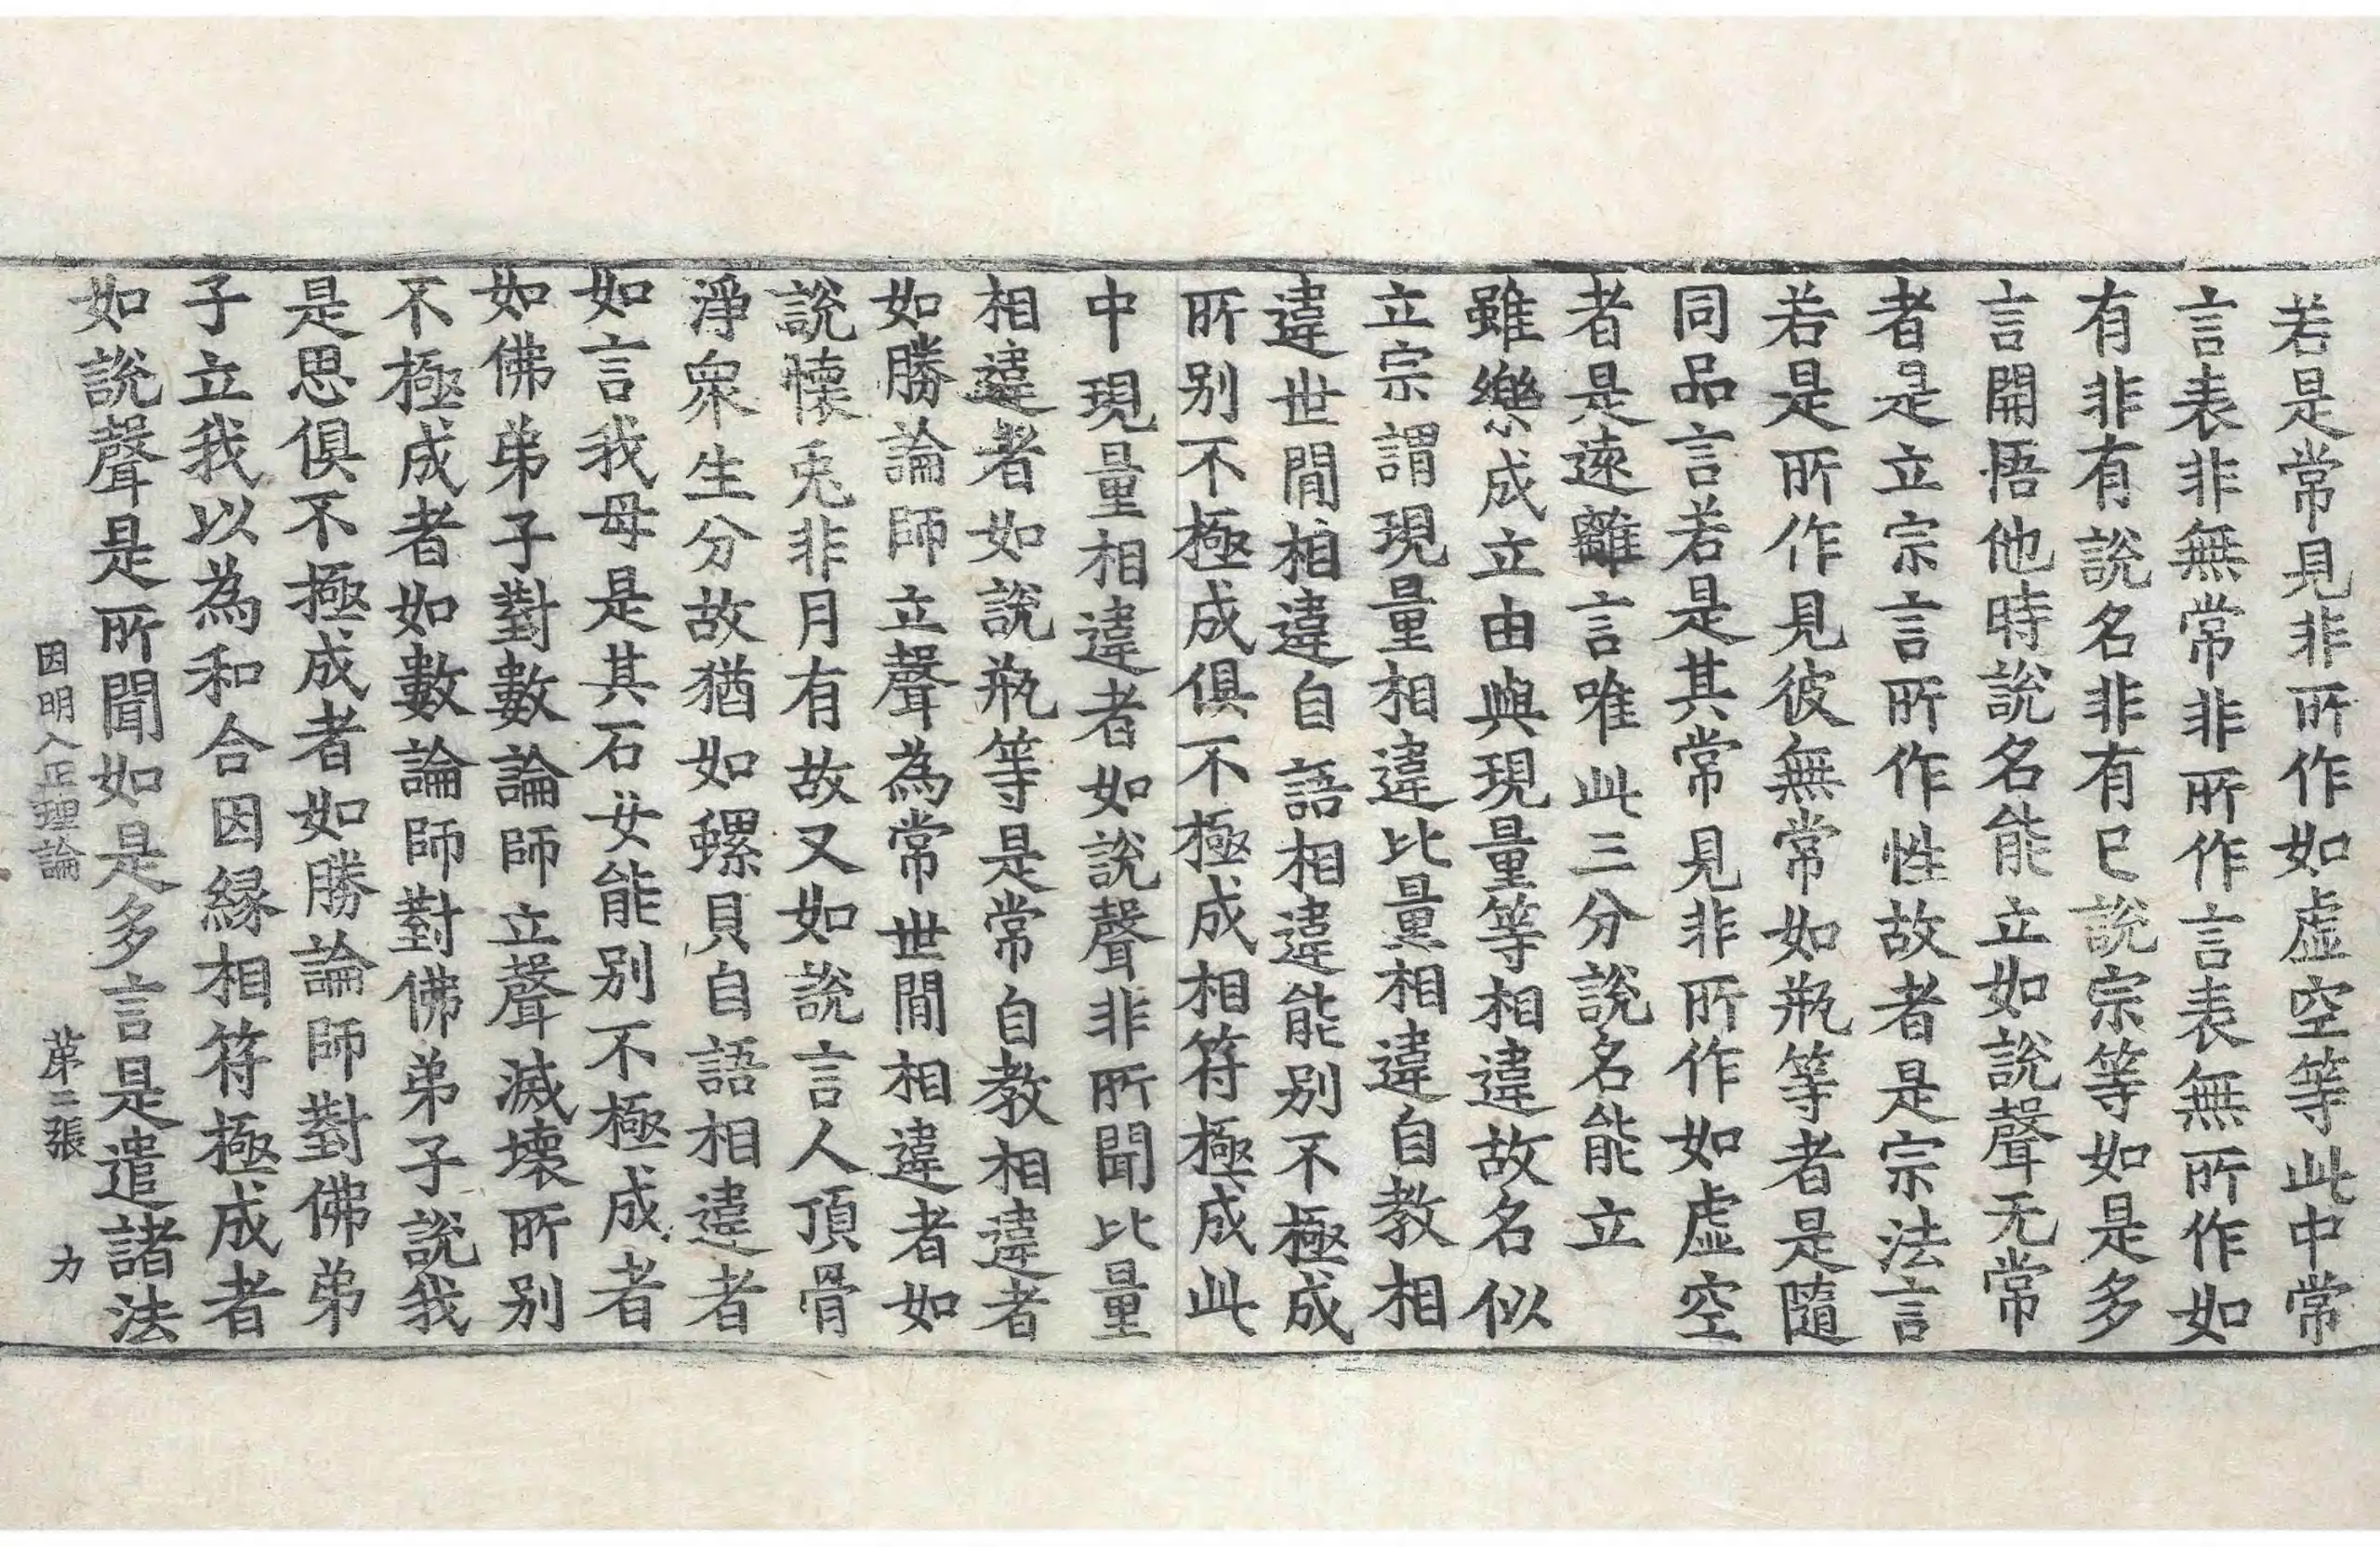 若是常見非所作如虛空等此中常
言表非無常非所作言表無所作如
有非有說名非有已說宗等如是多
言開悟他時說名能立如說聲无常
者是立宗言所作性故者是宗法言
若是所作見彼無常如瓶等者是隨
同品言若是其常見非所作如虛空
者是遠離言唯此三分說名能立
雖樂成立由與現量等相違故名似
立宗謂現量相違比量相違自教相
違世間相違自語相違能別不極成
所別不極成俱不極成相符極成此
中現量相違者如說聲非所聞比量
相違者如說瓶等是常自教相違者
如勝論師立聲為常世間相違者如
說懷兎非月有故又如說言人頂骨
淨衆生分故猶如螺貝自語相違者
如言我母是其石女能別不極成者
如佛弟子對數論師立聲滅壞所別
不極成者如數論師對佛弟子說我
是思俱不極成者如勝論師對佛弟
子立我以為和合因緣相符極成者
如說聲是所聞如是多言是遣諸法
因明入正理論 苐三張 力